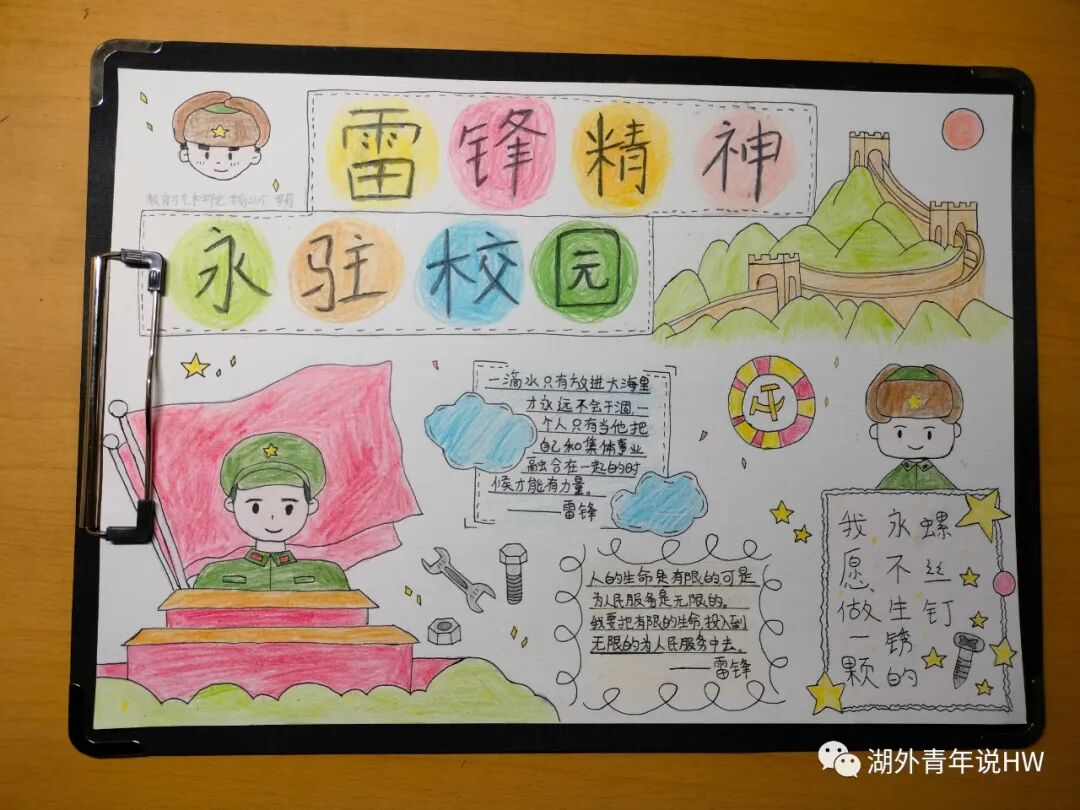 雷锋精神
永驻校园
一滴水只有放进大海里
才永远不会干涸,一
个人只有当他把
自己和集体事业
融合在一起的时
候才能有力量。
——雷锋
人的生命是有限的可是
为人民服务是无限的。
我要把有限的生命,投入到
无限的为人民服务中去。
——雷锋
我愿做一颗
永不生锈的
螺丝钉
湖外青年说HW